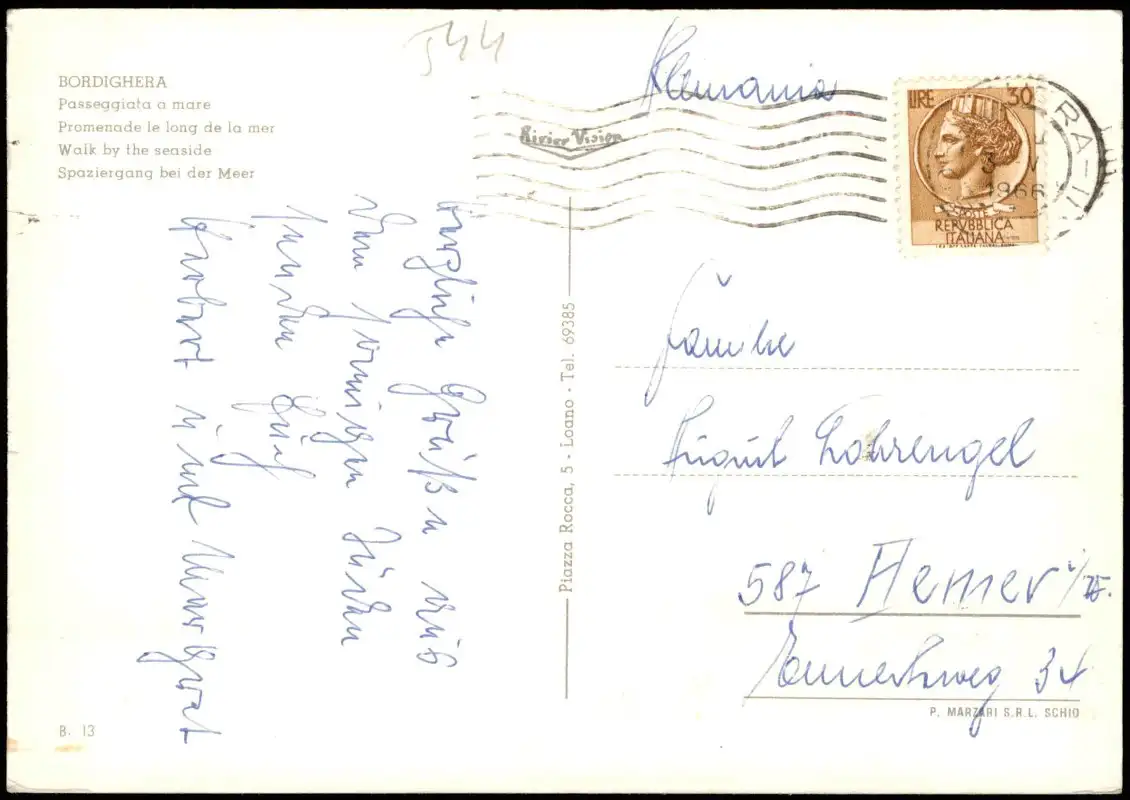 544
BORDIGHERA
Passeggiata a mare
Promenade le long de la mer
Walk by the seaside
Spaziergang bei der Meer
Alemania
Rivier Vision
LIRE 30
POSTE
REPVBBLICA
ITALIANA
RA-I
1966
herzliche Grüße aus
dem sonnigen Süden
senden Euch
Norbert und Margret
Piazza Rocca, 5 - Loano - Tel. 69385
Familie
August Lohrengel
587 Hemer i/W.
34
P. MARZARI S.R.L. SCHIO
B. 13